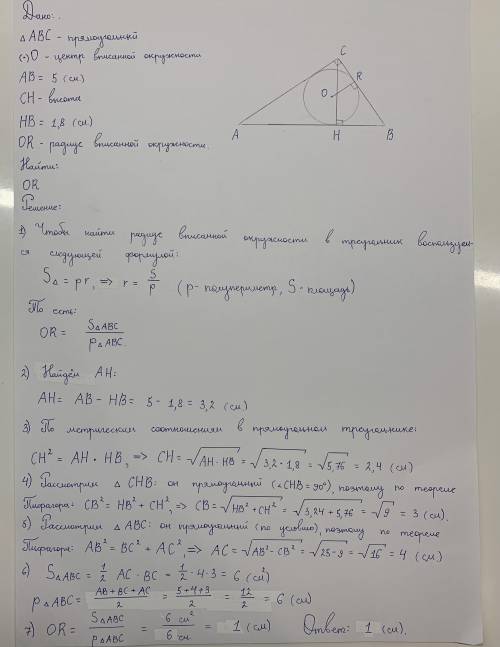 Дано:.
△ ABC - прямоугольный
(·) O - центр вписанной окружности
AB = 5 (см)
CH - высота
HB = 1,8 (см)
OR - радиус вписанной окружности.
Найти:
OR
Решение:
C
R
O
A
H
B
1) Чтобы найти радиус вписанной окружности в треугольник воспользуем-
ся следующей формулой:
S△ = pr, => r = S/p (p - полупериметр, S - площадь)
То есть:
OR = S△ABC / p△ABC.
2) Найдём AH:
AH = AB - HB = 5 - 1,8 = 3,2 (см)
3) По метрическим соотношениям в прямоугольном треугольнике:
CH² = AH · HB, => CH = √AH · HB = √3,2 · 1,8 = √5,76 = 2,4 (см)
4) Рассмотрим △ CHB: он прямоугольный (∠CHB = 90°), поэтому по теореме
Пифагора: CB² = HB² + CH², => CB = √HB² + CH² = √3,24 + 5,76 = √9 = 3 (см).
5) Рассмотрим △ ABC: он прямоугольный (по условию), поэтому по теореме
Пифагора: AB² = BC² + AC², => AC = √AB² - CB² = √25 - 9 = √16 = 4 (см)
6) S△ABC = 1/2 AC · BC = 1/2 · 4 · 3 = 6 (см²)
p△ABC = AB + BC + AC / 2 = 5 + 4 + 3 / 2 = 12/2 = 6 (см)
7) OR = S△ABC / p△ABC = 6 см² / 6 см = 1 (см) Ответ: 1 (см).